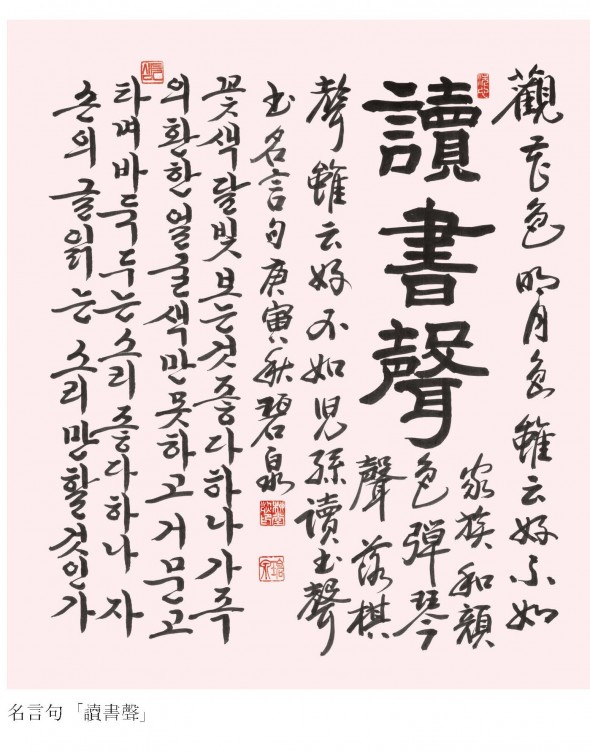 觀花色明月色雖云好不如
讀書聲
家族和顔
色彈琴
聲落棋
聲雖云好不如兒孫讀書聲
書名言句庚寅秋碧泉
꽃색달빛보는것좋다하나가족
의환한얼굴색만못하고거문고
타며바둑두는소리좋다하나자
손의글읽는소리만할것인가
名言句「讀書聲」